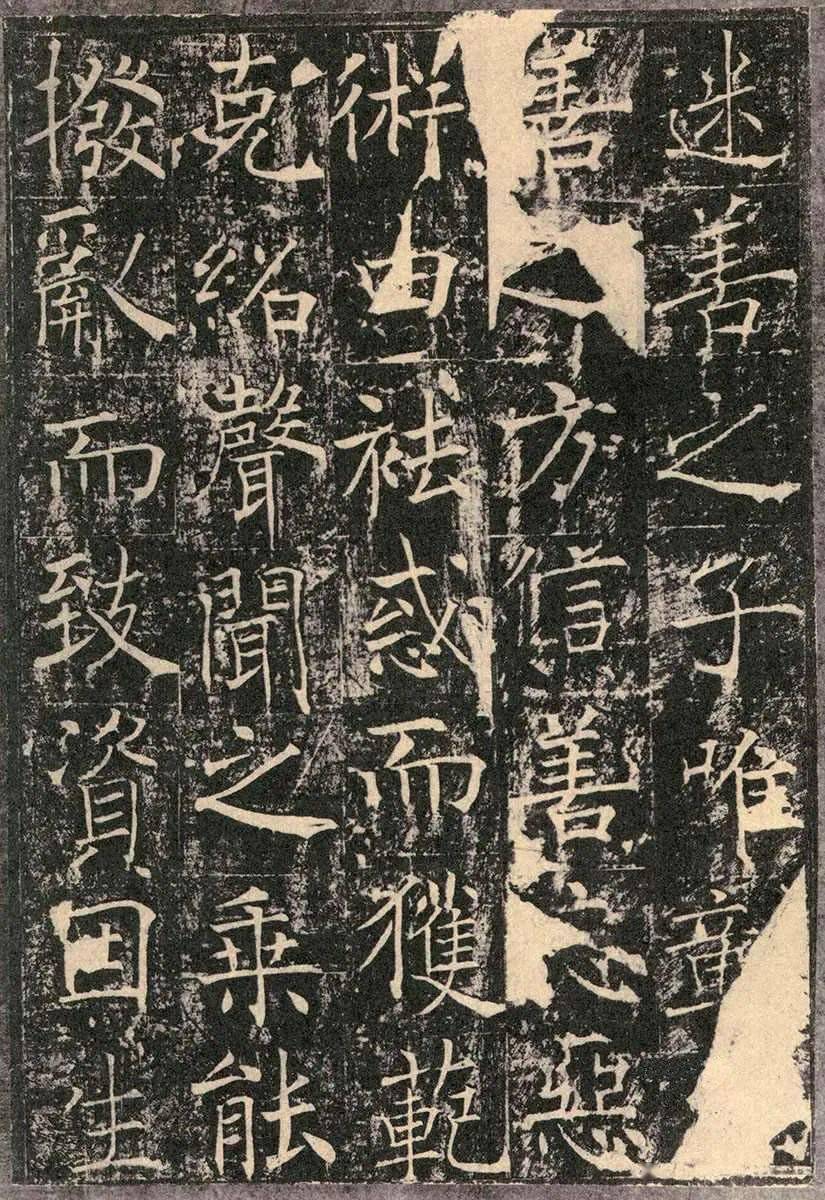 迷善之子唯童
善之方信善惡
術由袪惑而獲範
克紹聲聞之乗能
撥亂而致資因生